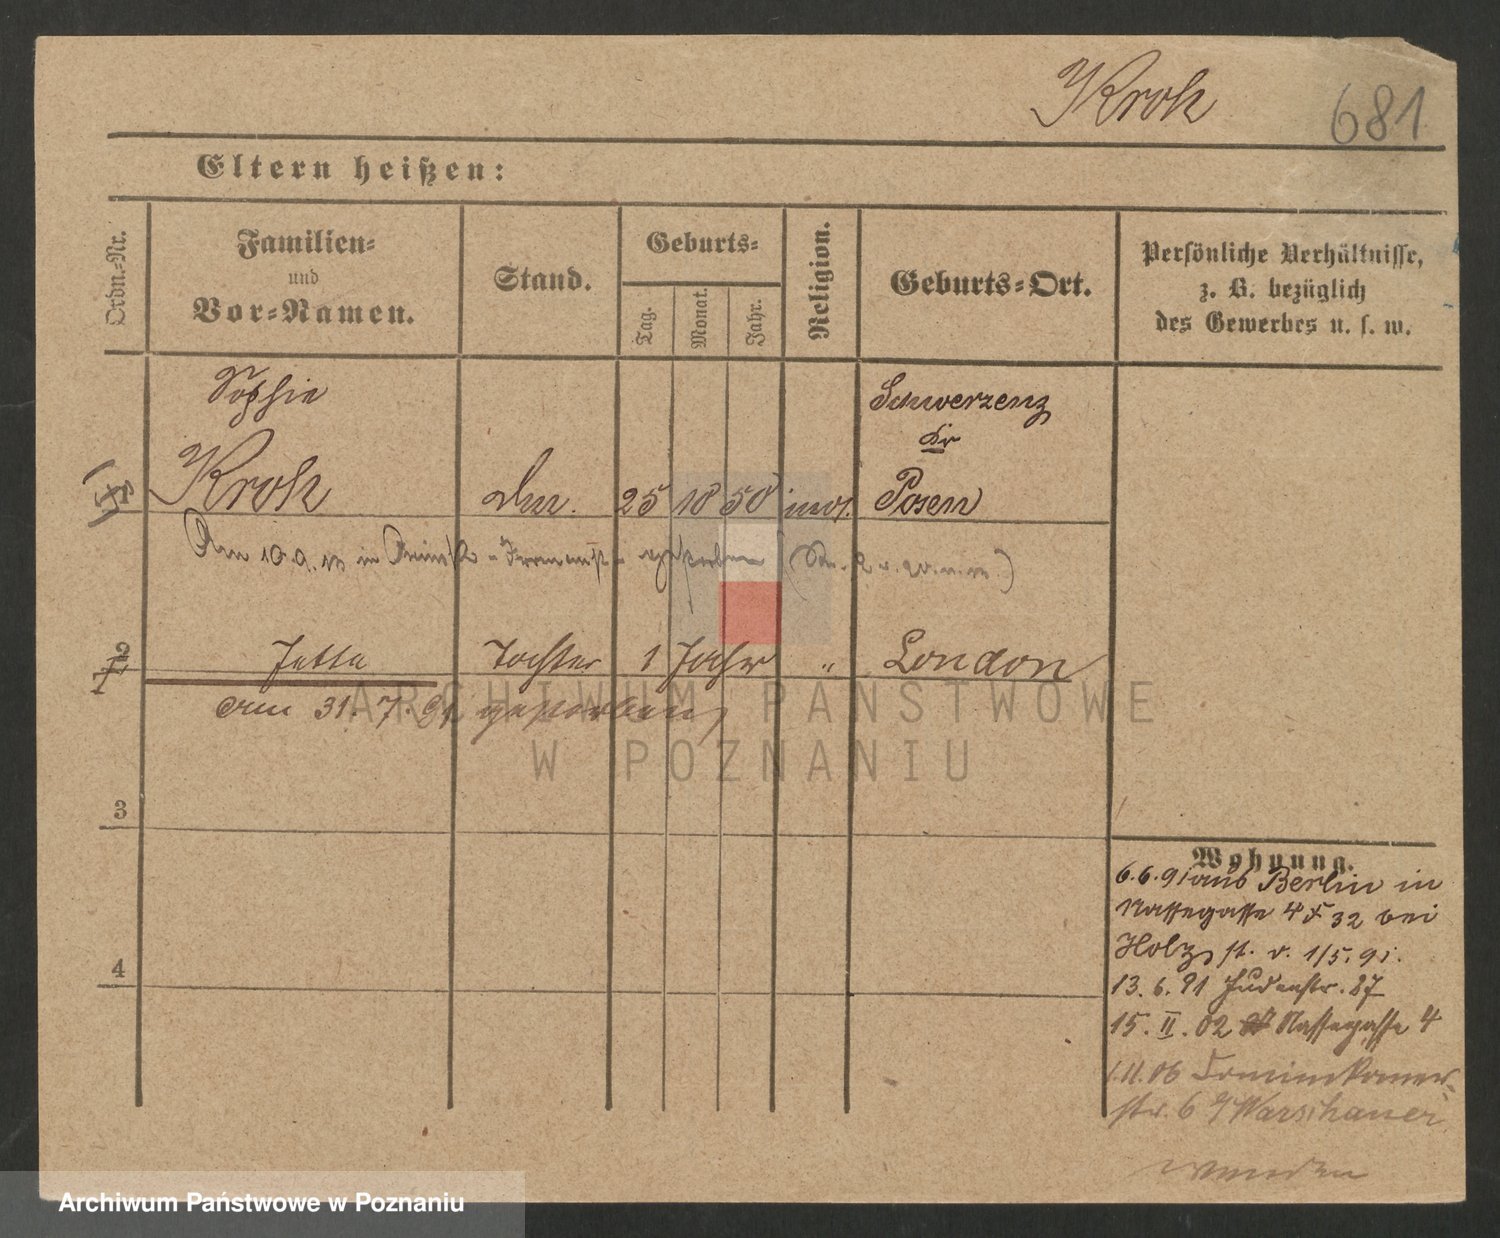 Kroh 681
Eltern heißen:
Ordn.-Nr. Familien- und Vor-Namen. Stand. Geburts- Tag. Monat. Jahr. Religion. Geburts-Ort. Persönliche Verhältnisse, z. B. bezüglich des Gewerbes u. s. w.
Sophie Schwersenz
Kr
1 Kroh 25 10 50 mos. Posen
Am 10. 9. in gestorben
2 Jetta Tochter 1 Jahr " London
1
am 31. 7. 91 gestorben
3
4
Wohnung.
6.6.91 aus Berlin in
Nassegasse 4 32 bei
Holz, st. v. 1/5. 91.
13. 6. 91 Judenstr. 27
15. II. 02 Nassegasse 4
1.11.06 Dominikaner-
str. 6 Warschauer
wenden
ARCHIWUM PAŃSTWOWE
W POZNANIU
Archiwum Państwowe w Poznaniu